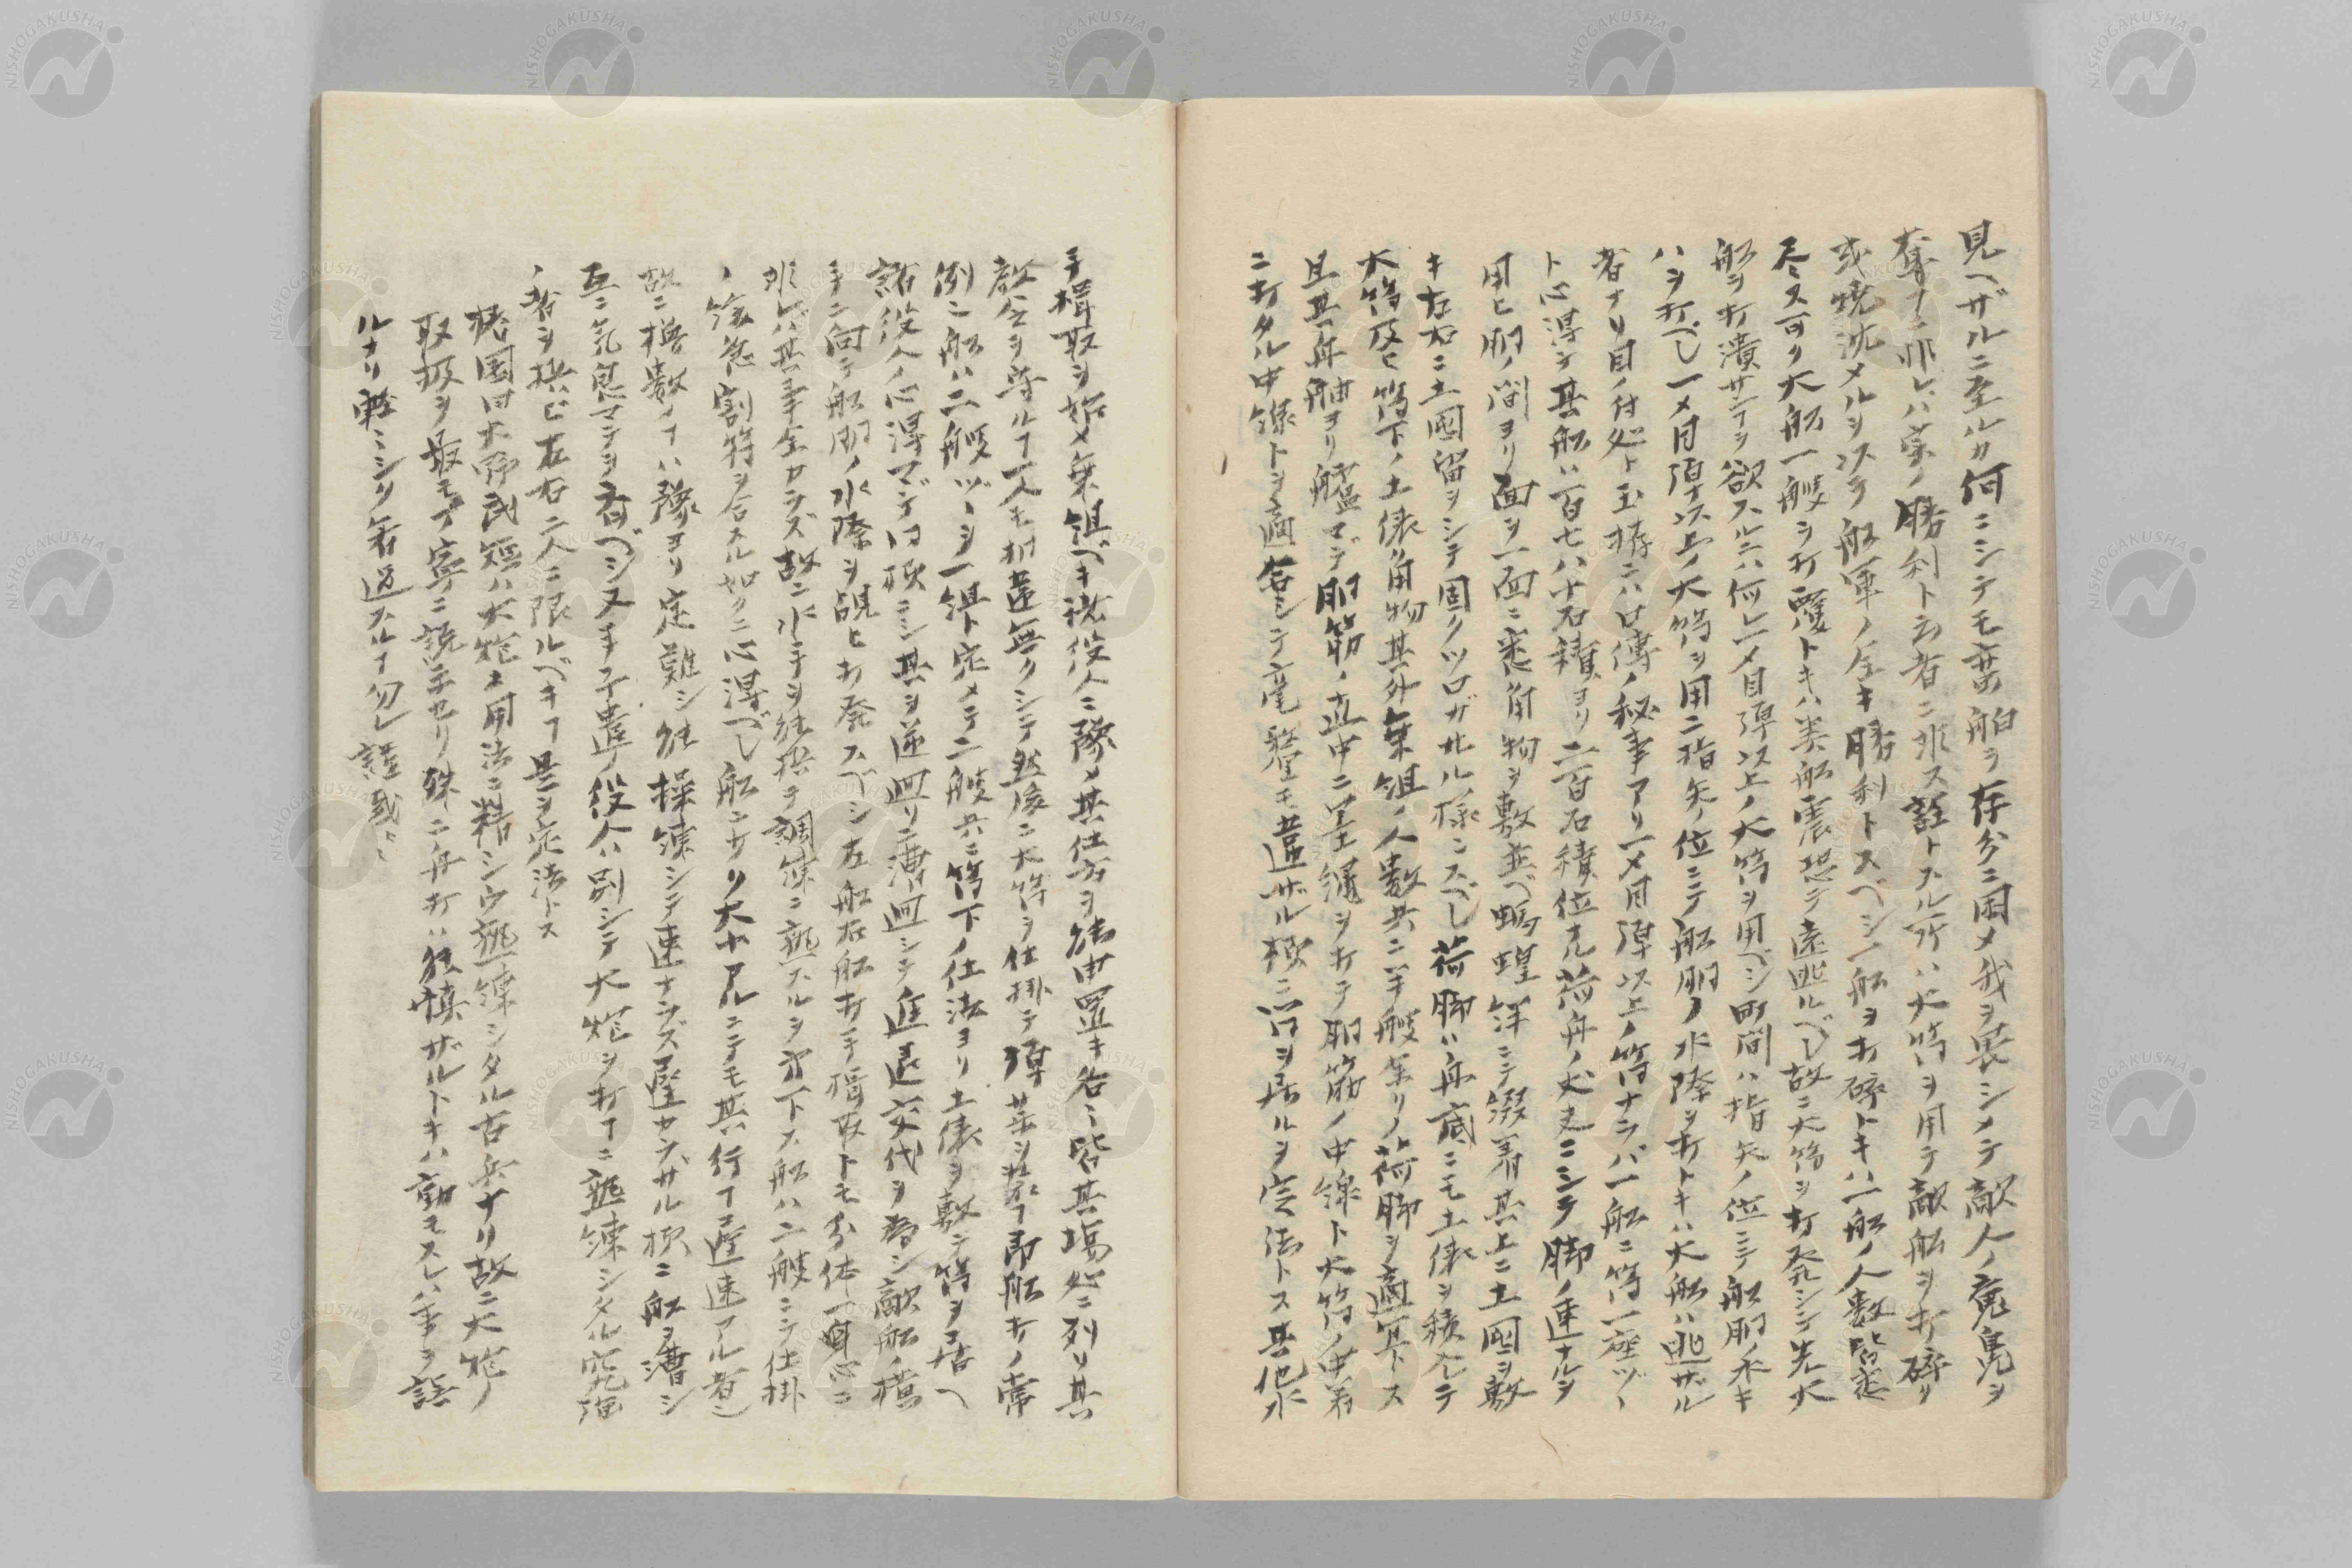 見ヘザルニ至ルカ何ニシテモ乗舶ヲ存分ニ困メ我ヲ畏シメテ敵人ノ魂鬼ヲ
奪フニ非レハ実ノ勝利ト云者ニ非ス註トスル所ハ大筒ヲ用テ敵船ヲ打碎リ
或焼沈メルヲ以テ船軍ノ全キ勝利トスベシ一船ヲ打碎トキハ一船ノ人数皆悉
尽ス可ク大船一艘ヲ打覆トキハ类船震恐テ遠迯ルベし故ニ大筒ヲ打発シテ先大
船ヲ打潰サンフヲ欲スルニハ何レ一メ目弾以上ノ大筒ヲ用ベシ町間ハ指矢ノ位ニテ船胴ノ水キ
ハヲ打べし一メ目弾以上ノ大筒ヲ用ニ指矢ノ位ニテ船胴ノ水際ヲ打トキハ大船ハ迯ザル
者ナリ目ノ付処ト玉持ニハ口傳ノ秘事アリ一メ目弾以上ノ筒ナラバ一船ニ筒一座ヅヽ
ト心得テ其船ハ百七八十石積ヨリ二百石積位ナル荷舟ノ丈夫ニシテ脚ノ連ナルヲ
用ヒ胴ノ間ヨリ面ヲ一面ニ悉角物ヲ敷並ベ螞蝗袢ニテ綴着其上ニ土圍ヲ敷
キ左右ニ土圍留ヲシテ固クツロガザル様ニスべし荷脚ハ舟底ニモ土俵ヲ積入レテ
大筒及ヒ筒下ノ土俵角物其外乗組ノ人数共ニ半艘余リノ荷脚ヲ適宜トス
且其舟舳ヨリ艫マデ胴筋ノ直中ニ墨縄ヲ打テ胴筋ノ中線ト大筒ノ中若
ニ打タル中線トヲ適合シテ毫釐モ違ザル様ニ筒ヲ居ルヲ定法トス其他水
手楫取ヲ始メ乗組ベキ諸役人ニ豫メ其仕方ヲ德申置キ各ミ皆其場処ニ列リ其
教令ヲ守ルフ一人モ相違無クシテ然後ニ大筒ヲ仕掛テ弾薬ヲ裝フ即船打ノ常
例ニ船ハ二艘ヅヽヲ一組ト定メテ二艘共ニ筒下ノ仕法ヨリ土俵ヲ敷テ筒ヲ居ヘ
諸役人ノ心得マデ同様ニシ其ヲ逆廻リニ漕廻シテ進退交代ヲ為シ敵船ノ横
手ニ向テ船胴ノ水際ヲ覘ヒ打発スベシ左船右船打手楫取トモ分体一身心ニ
非レハ其事全カラズ故ニ水手ヲ能撰テ調練ニ熟スルヲ専一トス船ハ二艘ニテ仕掛
ノ緩急割符ヲ合スル如クニ心得べし船ニヨリ大小アルニテモ其行フニ遅速アル者也
故ニ櫓数ノフハ豫ヨリ定難シ能操練シテ速ナラズ遅カラザル様ニ船ヲ漕シ
互ニ気息マデヲ斉ベシ又手子遣ノ役人ハ別シテ大炮ヲ打フニ熟練シタル究强
ノ者ヲ撰ビ左右二人ニ限ルベキフ是ヲ定法トス
桂国日大野氏短ハ大炮ノ用法ニ精シク熟練シタル古兵ナリ故ニ大炮ノ
取扱ヲ最モ丁寧ニ説示セリ殊ニ舟打ハ能慎ザルトキハ動モスレハ重ヲ誤
ルナリ輕ミシク看過スルフ勿レ謹或ミ